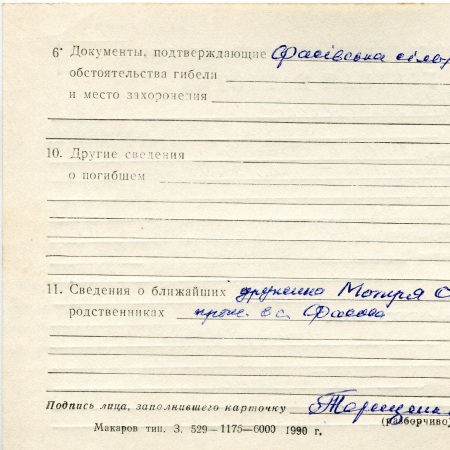 6· Документы, подтверждающие Фасівська сіль
обстоятельства гибели
и место захоронения
10. Другие сведения
о погибшем
11. Сведения о ближайших дружина Мотря О
родственниках прож. в с. Фасова
Подпись лица, заполнившего карточку
(разборчиво)
Макаров тип. З. 529—1175—6000 1990 г.